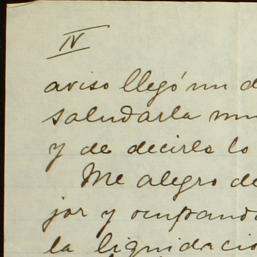 IV
aviso llegó un d
saludarla mu
y de decirle lo
Me alegro de
jor y ocupando
la liquidacio